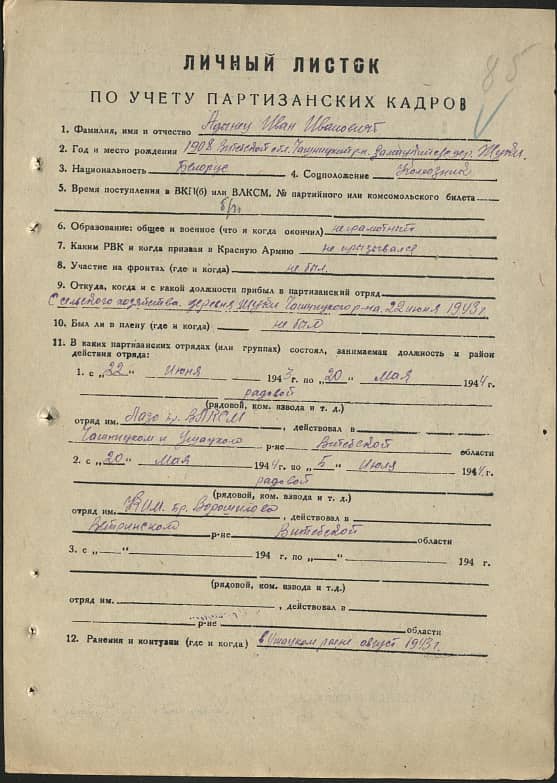 85
ЛИЧНЫЙ ЛИСТОК
ПО УЧЕТУ ПАРТИЗАНСКИХ КАДРОВ
1. Фамилия, имя и отчество Иван Иванович
2. Год и место рождения 1908 Витебской обл. Чашницкий р-н дер.
3. Национальность Белорус 4. Соцположение Колхозник
5. Время поступления в ВКП(б) или ВЛКСМ, № партийного или комсомольского билета
б/п
6. Образование: общее и военное (что и когда окончил) неграмотный
7. Каким РВК и когда призван в Красную Армию не призывался
8. Участие на фронтах (где и когда) не был.
9. Откуда, когда и с какой должности прибыл в партизанский отряд
С сельского хозяйства. деревня Чашницкого р-на. 22 июня 1943 г.
10. Был ли в плену (где и когда) не был
11. В каких партизанских отрядах (или группах) состоял, занимаемая должность и район
действия отряда:
1. с „22" июня 1943 г. по „20" мая 1944 г.
рядовой
(рядовой, ком. взвода и т. д.)
отряд им. Лазо бр. ВЛКСМ, действовал в
Чашницком и Ушацкого р-не Витебской области
2. с „20" мая 1944 г. по „5" июля 1944 г.
рядовой
(рядовой, ком. взвода и т. д.)
отряд им. КИМ. бр. Ворошилова, действовал в
Ветринского р-не Витебской области
3. с „ " 194 г. по „ " 194 г.
(рядовой, ком. взвода и т.д.)
отряд им. , действовал в
р-не области
12. Ранения и контузии (где и когда) в Ушацком р-не август 1943 г.